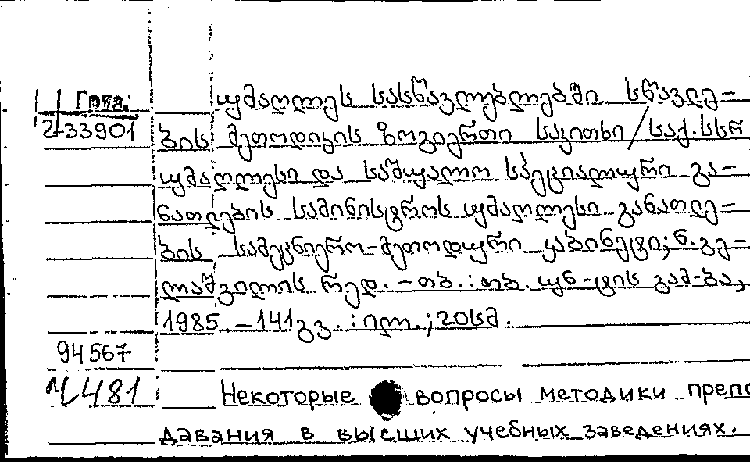 უმაღლეს სასწავლებლებში სწავლე-
2-33901 ბის მეთოდიკის ზოგიერთი საკითხი / საქ.სსრ
უმაღლესი და საშუალო სპეციალური გა-
ნათლების სამინისტროს უმაღლესი განათლე-
ბის სამეცნიერო-მეთოდური კაბინეტი; ნ.გე-
ლაშვილის რედ. - თბ. : თბ. უნ-ტის გამ-ბა,
1985. - 141გვ. : ილ.; 20სმ.
94567
481 Некоторые вопросы методики препо
давания в высших учебных заведениях.